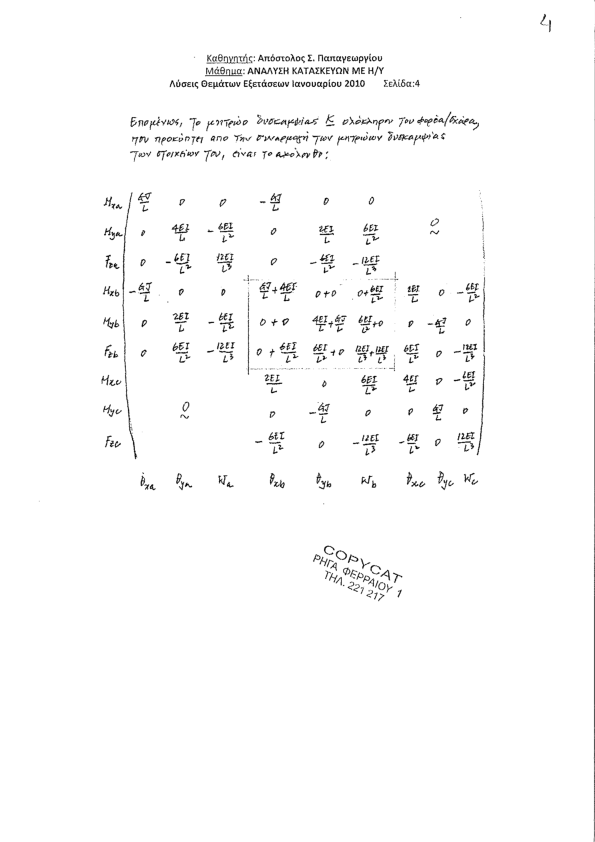 4
Καθηγητής: Απόστολος Σ. Παπαγεωργίου
Μάθημα: ΑΝΑΛΥΣΗ ΚΑΤΑΣΚΕΥΩΝ ΜΕ Η/Υ
Λύσεις Θεμάτων Εξετάσεων Ιανουαρίου 2010 Σελίδα:4
Επομένως, το μητρώο δυσκαμψίας K ολόκληρου του φορέα/εσχάρα,
που προκύπτει από την συναρμογή των μητρώων δυσκαμψίας
των στοιχείων του, είναι το ακόλουθο:
Mxa GJ/L 0 0 -GJ/L 0 0
Mya 0 4EI/L -6EI/L² 0 2EI/L 6EI/L² 0
Fza 0 -6EI/L² 12EI/L³ 0 -6EI/L² -12EI/L³
Mxb -GJ/L 0 0 GJ/L+4EI/L 0+0 0+6EI/L² 2EI/L 0 -6EI/L²
Myb 0 2EI/L -6EI/L² 0+0 4EI/L+GJ/L 6EI/L²+0 0 -GJ/L 0
Fzb 0 6EI/L² -12EI/L³ 0+6EI/L² 6EI/L²+0 12EI/L³+12EI/L³ 6EI/L² 0 -12EI/L³
Mxc 2EI/L 0 6EI/L² 4EI/L 0 -6EI/L²
Myc 0 0 -GJ/L 0 0 GJ/L 0
Fzc -6EI/L² 0 -12EI/L³ -6EI/L² 0 12EI/L³
θxa θya Wa θxb θyb Wb θxc θyc Wc
COPYCAT
ΡΗΓΑ ΦΕΡΡΑΙΟΥ 1
ΤΗΛ. 221 217